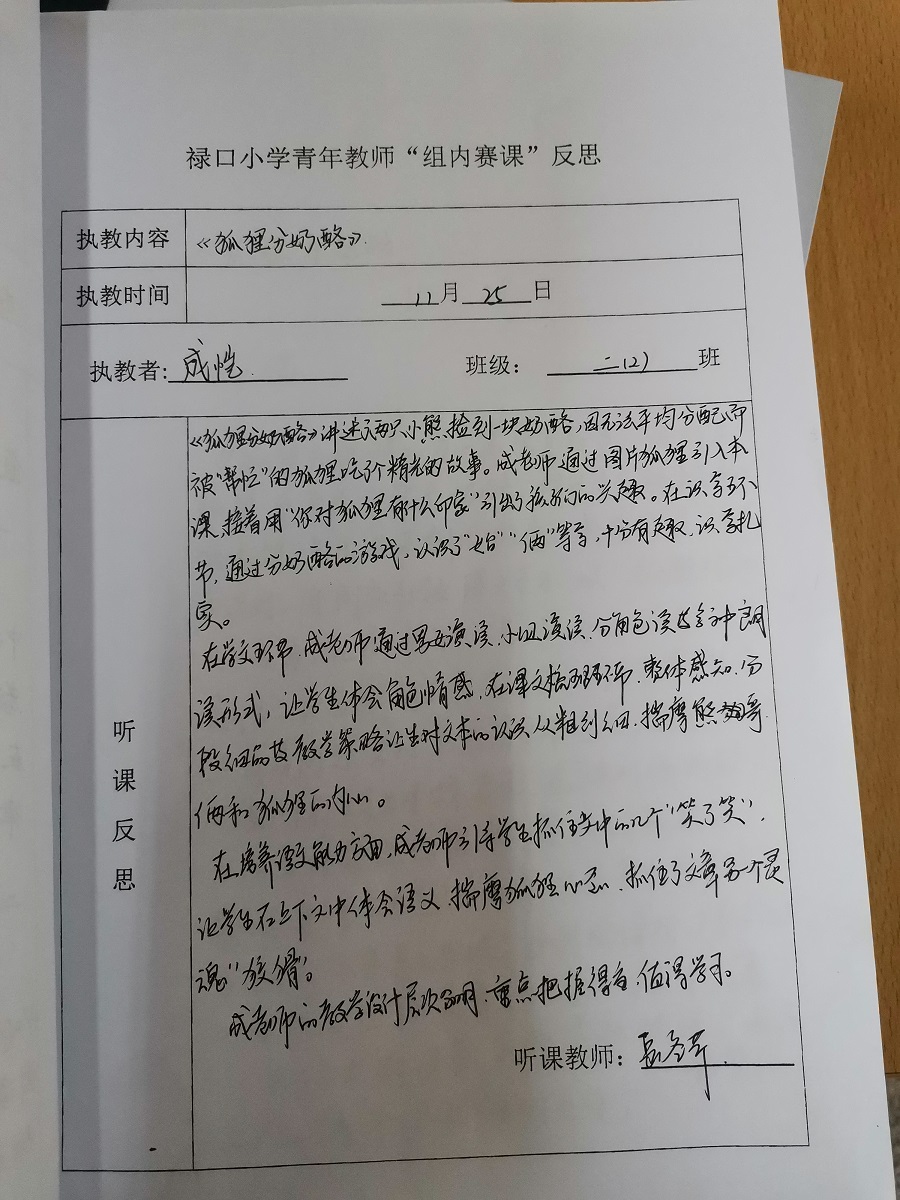 禄口小学青年教师“组内赛课”反思
执教内容 《狐狸分奶酪》
执教时间 11月25日
执教者: 成恺 班级: 二(2) 班
听课反思
《狐狸分奶酪》讲述了两只小熊捡到一块奶酪,因无法平均分配而
被“帮忙”的狐狸吃了个精光的故事。成老师通过图片狐狸引入本
课,接着用“你对狐狸有什么印象”引出了孩子们的兴趣。在识字环
节,通过分奶酪的游戏,认识了“始”“俩”等字,十分有趣,识字扎
实。
在学文环节,成老师通过男女演读、小组演读、分角色读等多种朗
读形式,让学生体会角色情感,在课文梳理环节,整体感知、分
段细品等教学策略让生对文本的认识从粗到细,揣摩熊哥
俩和狐狸的内心。
在培养语文能力方面,成老师引导学生抓住文中的几个“笑了笑”,
让学生在上下文中体会语义,揣摩狐狸心思,抓住了文章另一个灵
魂“狡猾”。
成老师的教学设计层次分明,重点把握得当,值得学习。
听课教师: